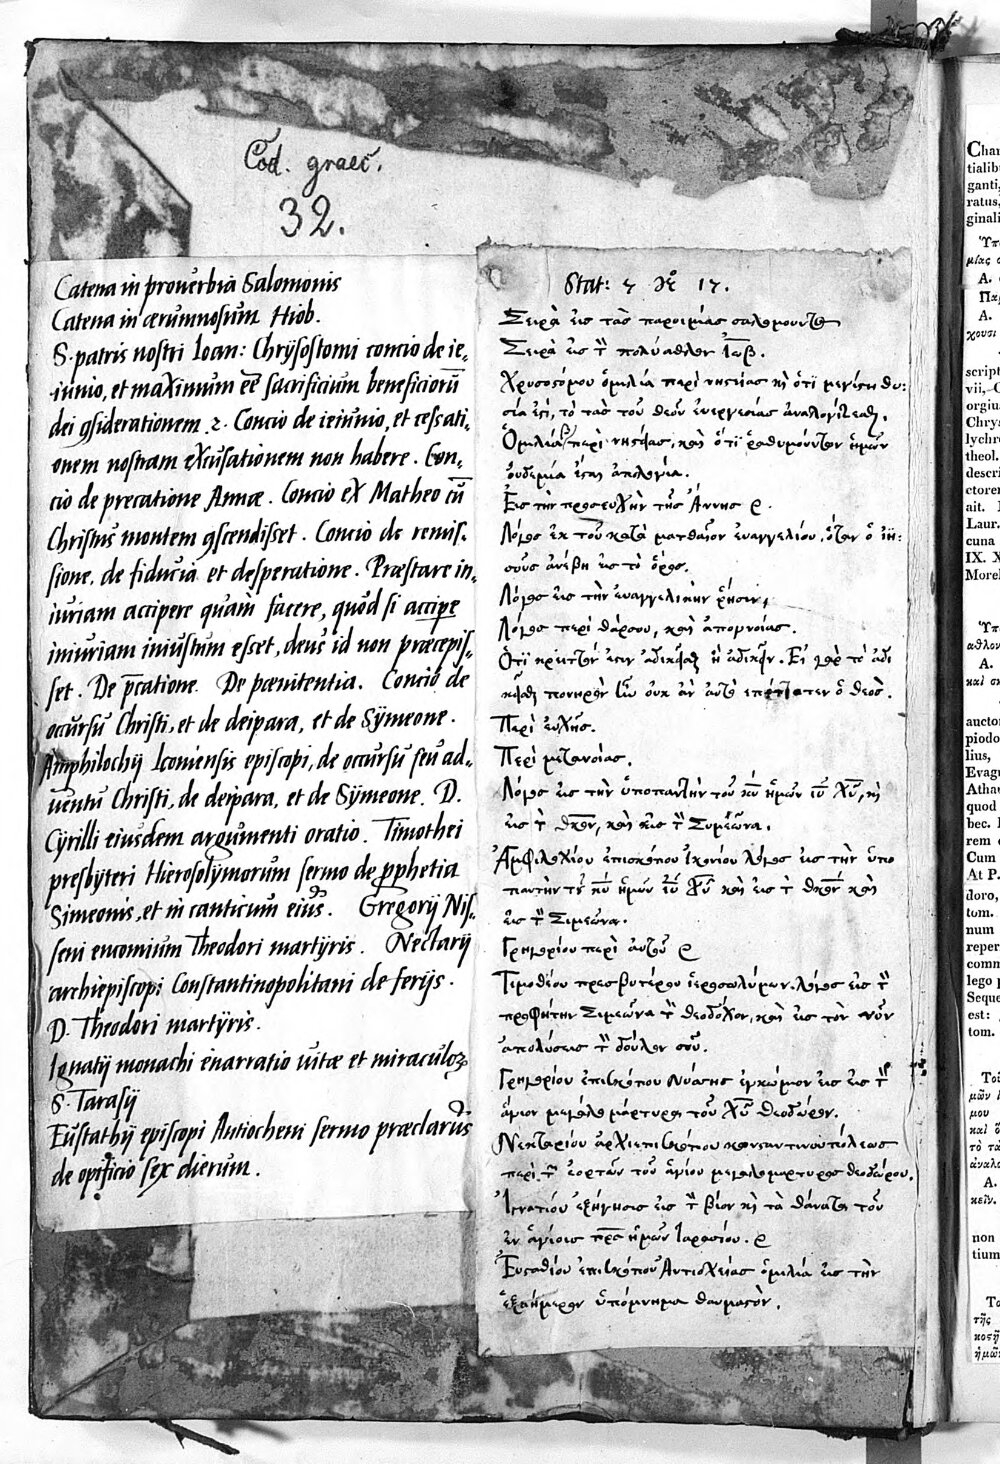 Cod. graec.
32.
Catena in prouerbia Salomonis
Catena in ærumnosum Hiob.
S. patris nostri Ioan: Chrÿsostomi concio de ie-
iunio, et maximum eē sacrificium beneficiorū
dei considerationem .2. Concio de ieiunio, et cessati-
onem nostram excusationem non habere. Con-
cio de precatione Annæ. Concio ex Matheo cū
Christus montem ascendisset. Concio de remis-
sione, de fiducia et desperatione. Præstare in-
iuriam accipere quàm facere, quod si accipe
iniuriam iniustum esset, deus id non præcepis-
set. De p̄catione. De pœnitentia. Concio de
occursu Christi, et de deipara, et de Sÿmeone.
Amphilochij Iconiensis episcopi, de occursu seu ad-
uentu Christi, de deipara, et de Sÿmeone. D.
Cÿrilli eiusdem argumenti oratio. Timothei
presbÿteri Hierosolÿmorum sermo de p̱phetia
Simeonis, et in canticum eius. Gregorij Nis-
seni encomium Theodori martÿris. Nectarij
archiepiscopi Constantinopolitani de ferijs.
D. Theodori martÿris.
Ignatij monachi enarratio uitæ et miraculoꝝ
S. Tarasij
Eustathij episcopi Antiocheni sermo præclarus
de opificio sex dierum.
Stat: 5 N° 17.
Σειρὰ εἰς τὰς παροιμίας σαλομουντος
Σειρὰ εἰς τ̄ πολύαθλον Ἰωβ.
Χρυσοστόμου ὁμιλία περὶ νηστείας κὴ ὅτι μεγίστη θυ-
σία ἐστι, τὸ τὰς τοῦ θεοῦ ἐνεργεσίας ἀναλογίζεσθαι.
Ὁμιλία β περὶ νηστείας, καὶ ὅτι ῥαθυμούντων ἡμῶν
οὐδεμία ἐστὶν ἀπολογία.
Εἰς τὴν προσευχὴν τῆς Ἄννης
Λόγος ἐκ τοῦ κατὰ ματθαῖον εὐαγγελίου, ὅταν ὁ ἰη-
σοῦς ἀνέβη εἰς τὸ ὄρος.
Λόγος εἰς τὴν εὐαγγελικὴν ῥῆσιν,
Λόγος περὶ θάρσου, καὶ ἀπογνοίας.
Ὅτι κρεῖττόν ἐστιν ἀδικεῖσθαι ἢ ἀδικεῖν. Εἰ γὰρ τὸ ἀδι
κεῖσθαι πονηρὸν ἦν οὐκ ἂν αὐτὸ ἐπέταττεν ὁ θεός.
Περὶ εὐχῆς.
Περὶ μετανοίας.
Λόγος εἰς τὴν ὑποπαντὴν τοῦ κῦ ἡμῶν ιῦ χῦ, κὴ
εἰς τ̄ θκον, καὶ εἰς τ̄ Συμεῶνα.
Ἀμφιλοχίου ἐπισκόπου Ἰκονίου λόγος εἰς τὴν ὑπο
παντὴν τοῦ κῦ ἡμῶν ιῦ χῦ καὶ εἰς τ̄ θκον καὶ
εἰς τ̄ Σιμεῶνα.
Γρηγορίου περὶ αὐτοῦ
Τιμοθέου πρεσβυτέρου ἱεροσολύμων λόγος εἰς τ̄
προφήτην Σιμεῶνα τ̄ θεοδόχον, καὶ εἰς τὸν νῦν
ἀπολύσεις τ̄ δοῦλον σοῦ.
Γρηγορίου ἐπισκόπου Νύσσης ἐγκώμιον εἰς εἰς τ̄
ἅγιον μεγαλομάρτυρα τοῦ χῦ θεοδώρον.
Νεκταρίου ἀρχιεπισκόπου κωνσταντινουπόλεως
περὶ τ̄ ἑορτῶν τοῦ ἁγίου μεγαλομάρτυρος θεοδώρου.
Ἰγνατίου ἐξήγησις εἰς τ̄ βίον κὴ τὰ θαύματα τοῦ
ἐν ἁγίοις πρς ἡμῶν Ταρασίου.
Εὐσταθίου ἐπισκόπου Ἀντιοχείας ὁμιλία εἰς τὴν
ἑξαήμερον ὑπόμνημα θαυμαστὸν.